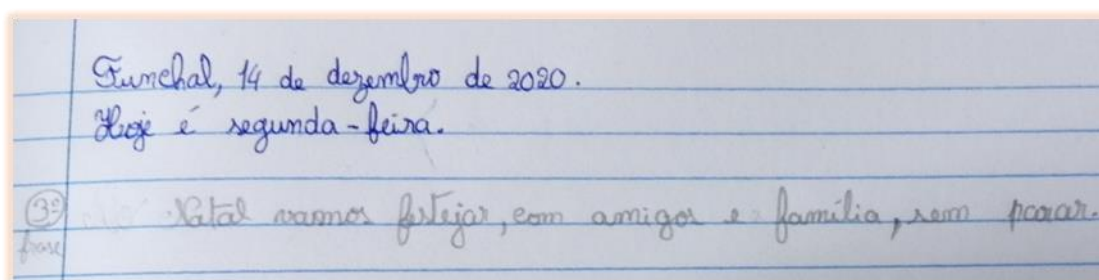 Funchal, 14 de dezembro de 2020.
Hoje é segunda-feira.
3ª Natal vamos festejar, com amigos e família, sem parar.
frase